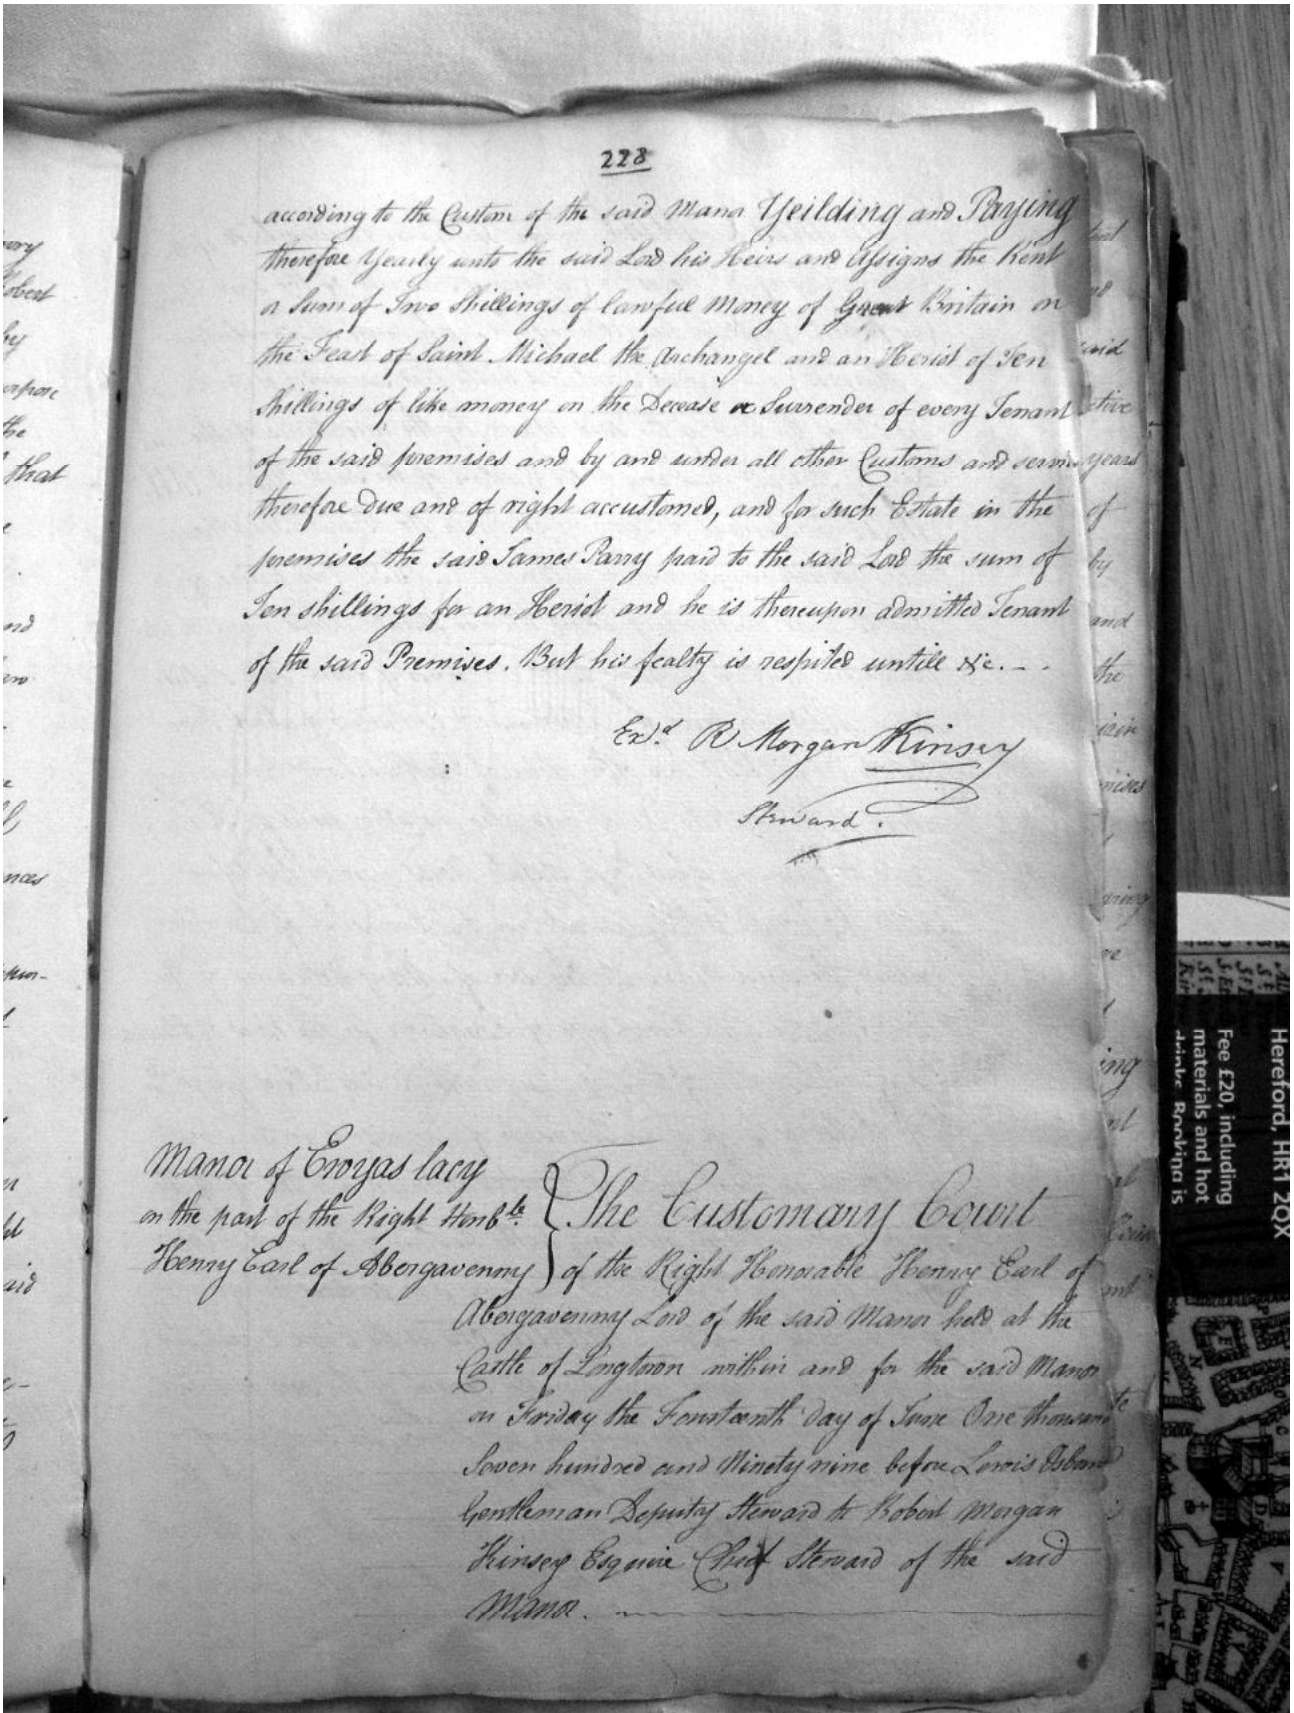 228
according to the Custom of the said Manor Yeilding and Paying
therefore Yearly unto the said Lord his Heirs and Assigns the Rent
or Sum of Two Shillings of lawful Money of Great Britain on
the Feast of Saint Michael the Archangel and an Heriot of Ten
Shillings of like money on the Decease or Surrender of every Tenant
of the said premises and by and under all other Customs and
therefore due and of right accustomed, and for such Estate in the
premises the said James Parry paid to the said Lord the sum of
Ten shillings for an Heriot and he is thereupon admitted Tenant
of the said Premises. But his fealty is respited untill &c. - -
Exd. R Morgan Kinsey
Steward.
Manor of Ewyas lacy
on the part of the Right Honble.
Henry Earl of Abergavenny
The Customary Court
of the Right Honorable Henry Earl of
Abergavenny Lord of the said Manor held at the
Castle of Longtown within and for the said Manor
on Friday the Fourteenth day of June One thousand
Seven hundred and Ninety nine before Lewis Osband
Gentleman Deputy Steward to Robert Morgan
Kinsey Esquire Chief Steward of the said
Manor.
very
Robert
by
the
that
nces
said
years
of
by
and
the
Hereford, HR1 2QX
Fee £20, including
materials and hot
drinks. Booking is